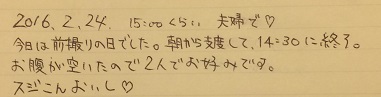 2016.2.24. 15:00くらい 夫婦で♡
今日は前撮りの日でした。朝から支度して、14:30に終了。
お腹が空いたので2人でお好みです。
スジこんおいし♡